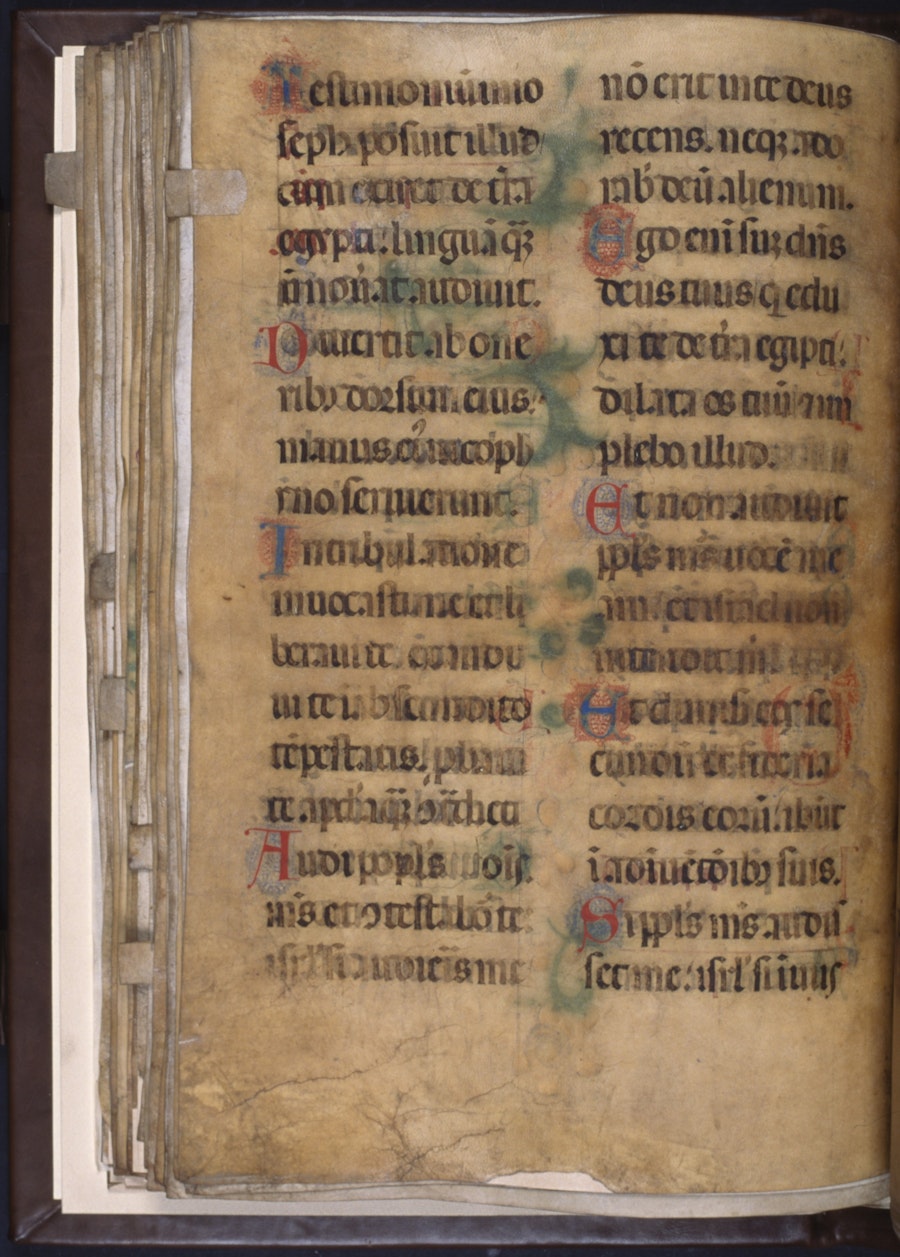 Testimoniū in io
seph posuit illud
cum exiret de tr̄a
egypti: linguā q̄ꝫ
nō nou̾at audiuit.
Diuertit ab one
ribꝫ dorsum eius:
manus ei᷒ in coph
ino seruierunt.
In tribulatione
inuocasti me et li
beraui te: exaudi
ui te in abscondito
tēpestatis: ꝓbaui
te apud aquā ꝯtradictiōis
Audi ppl̄s meus
et ꝯtestabor te:
isrl̄ si audieris me
nō erit in te deus
recens. neqꝫ ado
rab̾ deū alienum.
Ego eni̅ suꝫ dn̄s
deus tuus q̇ edu
xi te de tr̄a egipti:
dilata os tuū ⁊ im
plebo illud.
Et non audiuit
ppl̄s me᷒ uocē me
am: et isrl̄ non
intendit mi.
Et dimisi eos se
cundū desideria
cordis eorū: ibūt
in adinuētōibꝫ suis.
Si ppl̄s me᷒ audis
set me: isrl̄ si in uijs